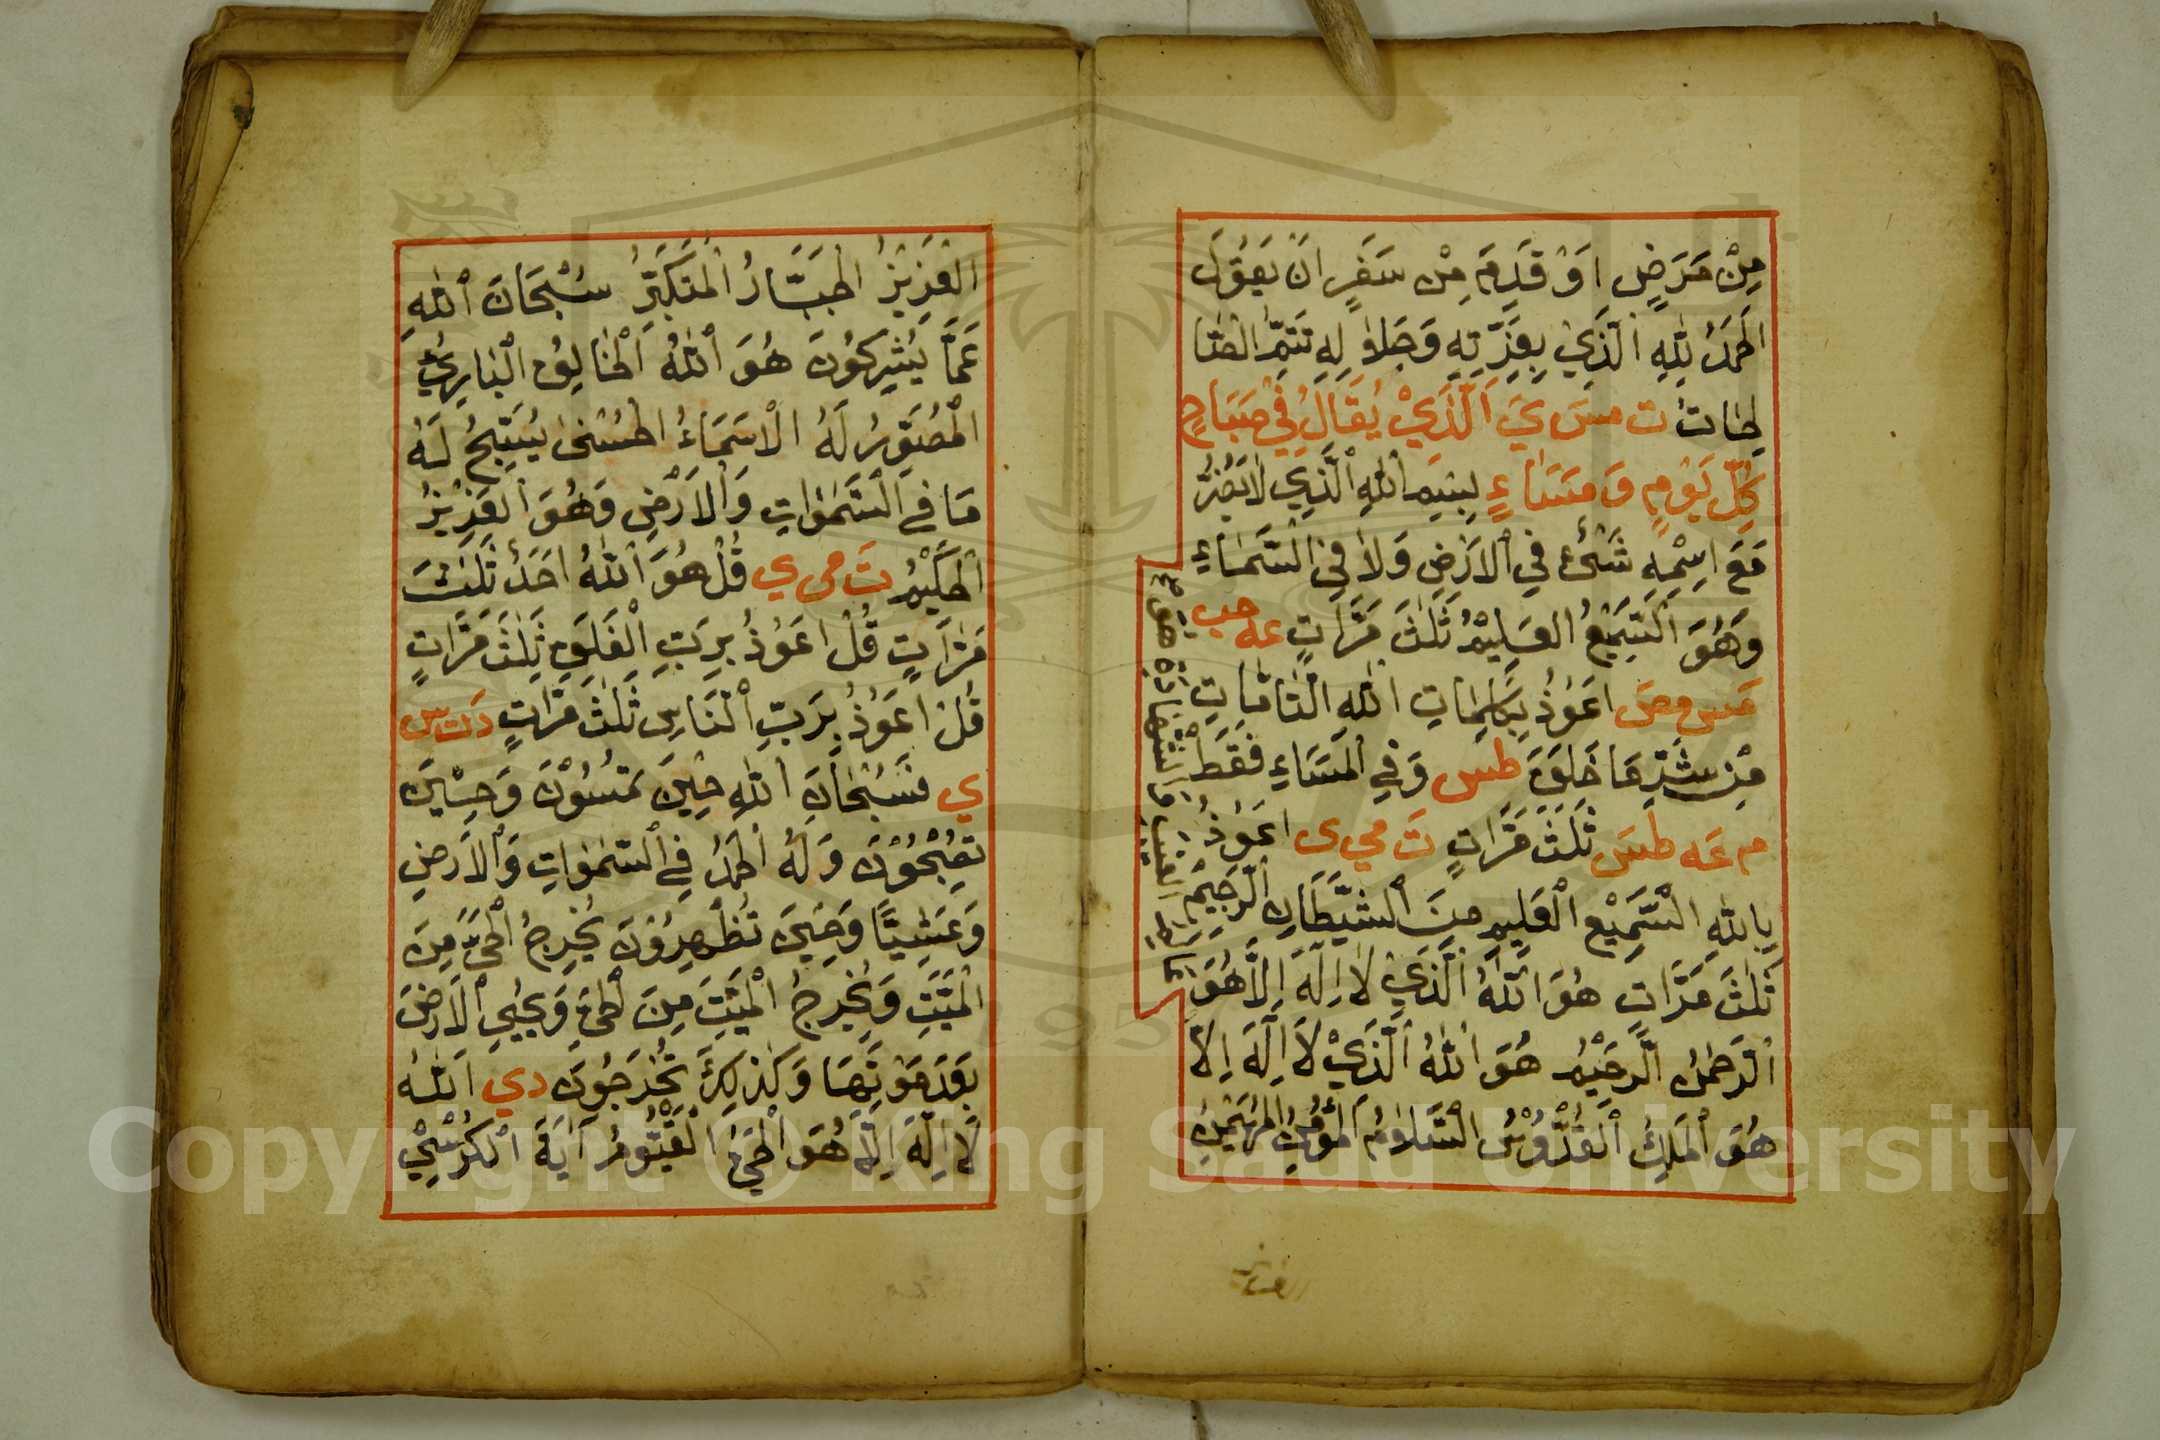 مِنْ مَرَضٍ اَوْ قَدِمَ مِنْ سَفَرٍ اَنْ يَقُولَ
اَلْحَمْدُ لِلّٰهِ الَّذِيْ بِعِزَّتِهِ وَجَلَالِهِ تَتِمُّ الصَّا
لِحَاتُ ت مس ي اَلَّذِيْ يُقَالُ فِيْ صَبَاحِ
كُلِّ يَوْمٍ وَ مَسَاءٍ بِسْمِ اللّٰهِ الَّذِي لَا يَضُرُّ
مَعَ اِسْمِهِ شَيْءٌ فِي الْاَرْضِ وَلَا فِي السَّمَاءِ
وَهُوَ السَّمِيْعُ الْعَلِيْمُ ثَلٰثَ مَرَّاتٍ عه حب
مس مص اَعُوْذُ بِكَلِمَاتِ اللّٰهِ التَّامَّاتِ
مِنْ شَرِّ مَا خَلَقَ طس وَفِي الْمَسَاءِ فَقَطْ
م عه طس ثَلٰثَ مَرَّاتٍ ت مي ى اَعُوْذُ
بِاللّٰهِ السَّمِيْعِ الْعَلِيْمِ مِنَ الشَّيْطَانِ الرَّجِيْمِ
ثَلٰثَ مَرَّاتٍ هُوَ اللّٰهُ الَّذِيْ لَا اِلٰهَ اِلَّا هُوَ
الرَّحْمٰنُ الرَّحِيْمُ هُوَ اللّٰهُ الَّذِيْ لَا اِلٰهَ اِلَّا
هُوَ الْمَلِكُ الْقُدُّوْسُ السَّلَامُ الْمُؤْمِنُ الْمُهَيْمِنُ
الْعَزِيْزُ الْجَبَّارُ الْمُتَكَبِّرُ سُبْحَانَ اللّٰهِ
عَمَّا يُشْرِكُوْنَ هُوَ اللّٰهُ الْخَالِقُ الْبَارِئُ
الْمُصَوِّرُ لَهُ الْاَسْمَاءُ الْحُسْنٰى يُسَبِّحُ لَهُ
مَا فِي السَّمٰوَاتِ وَالْاَرْضِ وَهُوَ الْعَزِيْزُ
الْحَكِيْمُ ت مى ي قُلْ هُوَ اللّٰهُ اَحَدٌ ثَلٰثَ
مَرَّاتٍ قُلْ اَعُوْذُ بِرَبِّ الْفَلَقِ ثَلٰثَ مَرَّاتٍ
قُلْ اَعُوْذُ بِرَبِّ النَّاسِ ثَلٰثَ مَرَّاتٍ د ت س
ي فَسُبْحَانَ اللّٰهِ حِيْنَ تُمْسُوْنَ وَحِيْنَ
تُصْبِحُوْنَ وَلَهُ الْحَمْدُ فِي السَّمٰوَاتِ وَالْاَرْضِ
وَعَشِيًّا وَحِيْنَ تُظْهِرُوْنَ يُخْرِجُ الْحَيَّ مِنَ
الْمَيِّتِ وَيُخْرِجُ الْمَيِّتَ مِنَ الْحَيِّ وَيُحْيِي الْاَرْضَ
بَعْدَ مَوْتِهَا وَكَذٰلِكَ تُخْرَجُوْنَ د ي اَللّٰهُ
لَا اِلٰهَ اِلَّا هُوَ الْحَيُّ الْقَيُّوْمُ اٰيَةَ الْكُرْسِيِّ
Copyright © King Saud University
1957